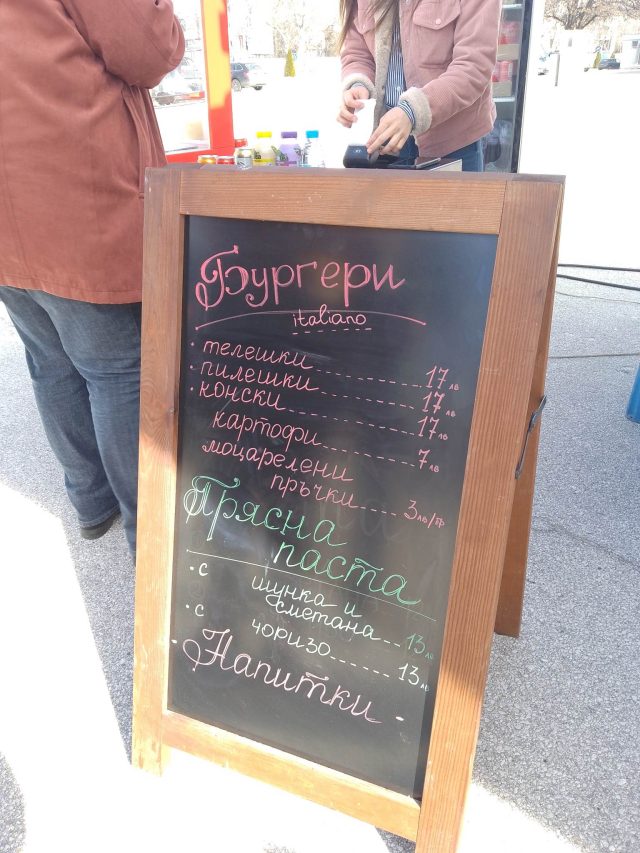 Бургери
italiano
· телешки 17лв
· пилешки 17лв
· конски 17лв
картофи 7лв
моцарелени
пръчки 3лв/бр
Прясна
паста
· с шунка и
сметана 13лв
· с чоризо 13лв
· Напитки ·